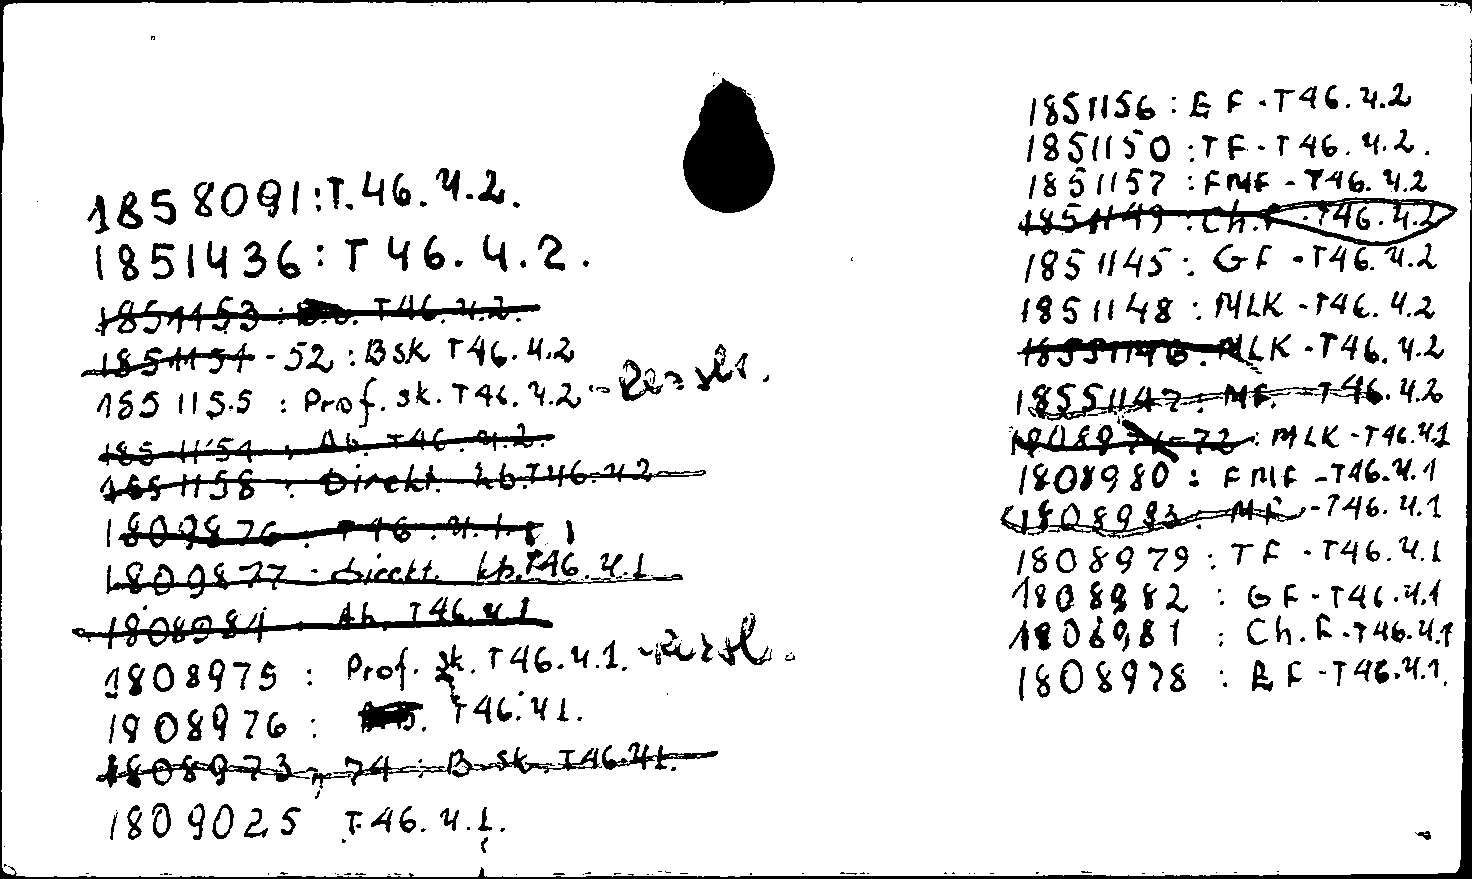 1858091:T.46.4.2.
1851436:T46.4.2.
1851153: T46.4.2.
1851151-52:Bsk T46.4.2
1851155:Prof.sk.T46.4.2-
1851154: Ab. T46.4.2.
1851158: Direkt. kb.T46.42
1809876. T46.4.1.
1809877-direkt. kb.T46.4.1
1808984: Ab. T46.4.1
1808975: Prof. sk. T46.4.1.
1808976: T46.41.
1808973, 74: B.sk. T46.41.
1809025 T.46.4.1.
1851156:EF-T46.4.2
1851150:TF-T46.4.2.
1851157:FMF-T46.4.2
1851149:Ch.F-T46.4.2
1851145: GF-T46.4.2
1851148:MLK-T46.4.2
18551146:MLK-T46.4.2
18551147: MF. T46.4.2
1808971-72: MLK-T46.41
1808980: FMF-T46.4.1
1808983: MF-T46.4.1
1808979: TF-T46.4.1
1808982: GF-T46.4.1
1808981: Ch.F-T46.4.1
1808978: EF-T46.4.1.